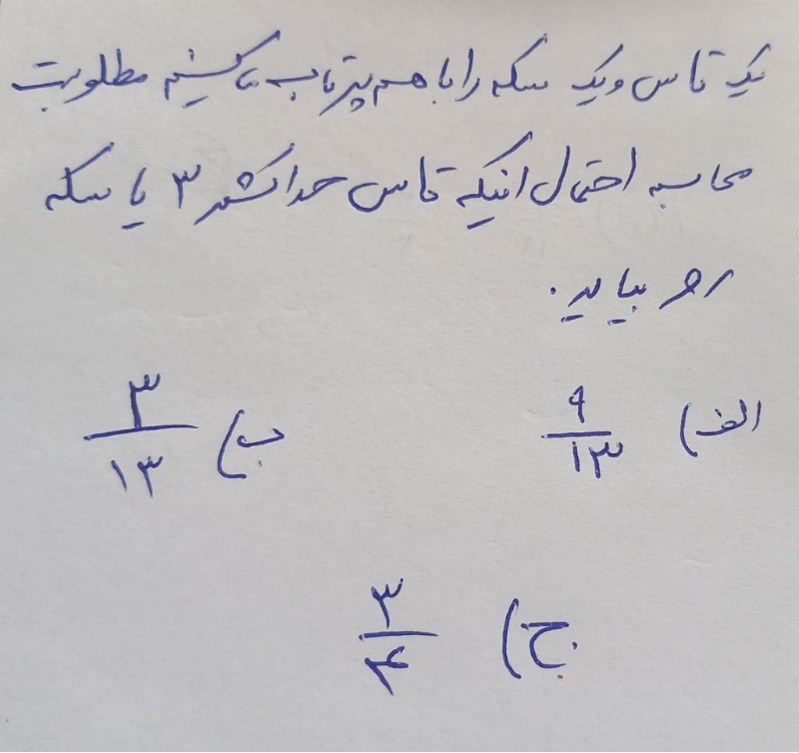 یک تاس و یک سکه را با هم پرتاب می‌کنیم مطلوبست
محاسبه احتمال اینکه تاس حداکثر ۳ یا سکه
رو بیاید.
الف) ۹/۱۳ ب) ۳/۱۳
ج) ۳/۴